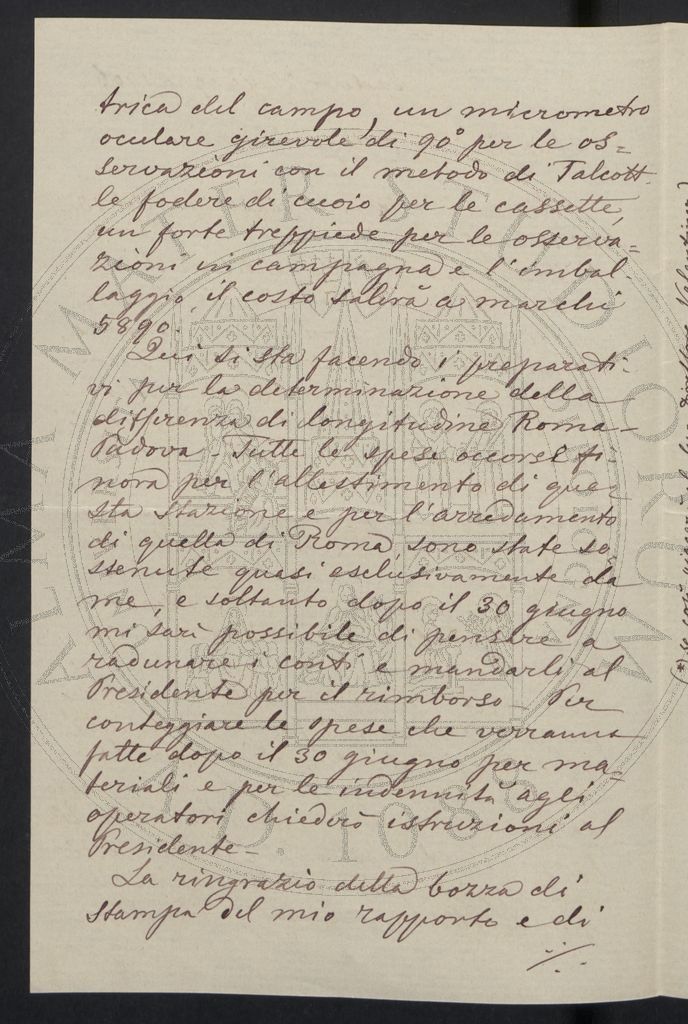 trica del campo, un micrometro
oculare girevole di 90° per le os=
servazioni con il metodo di Talcott
le fodere di cuoio per le cassette,
un forte treppiede per le osserva=
zioni in campagna e l'imbal
laggio, il costo salirà a marchi
5890.
Qui si sta facendo i preparati-
vi per la determinazione della
differenza di longitudine Roma-
Padova - Tutte le spese occorse fi-
nora per l'allestimento di que-
sta stazione e per l'arredamento
di quella di Roma, sono state so
stenute quasi esclusivamente da
me, e soltanto dopo il 30 giugno
mi sarà possibile di pensare a
radunare i conti e mandarli al
Presidente per il rimborso - Per
conteggiare le spese che verranno
fatte dopo il 30 giugno per ma-
teriali e per le indennità agli
operatori chiederò istruzioni al
Presidente -
La ringrazio della bozza di
stampa del mio rapporto e di
./.
ALMA MATER STUDIORUM
A.D. 1088